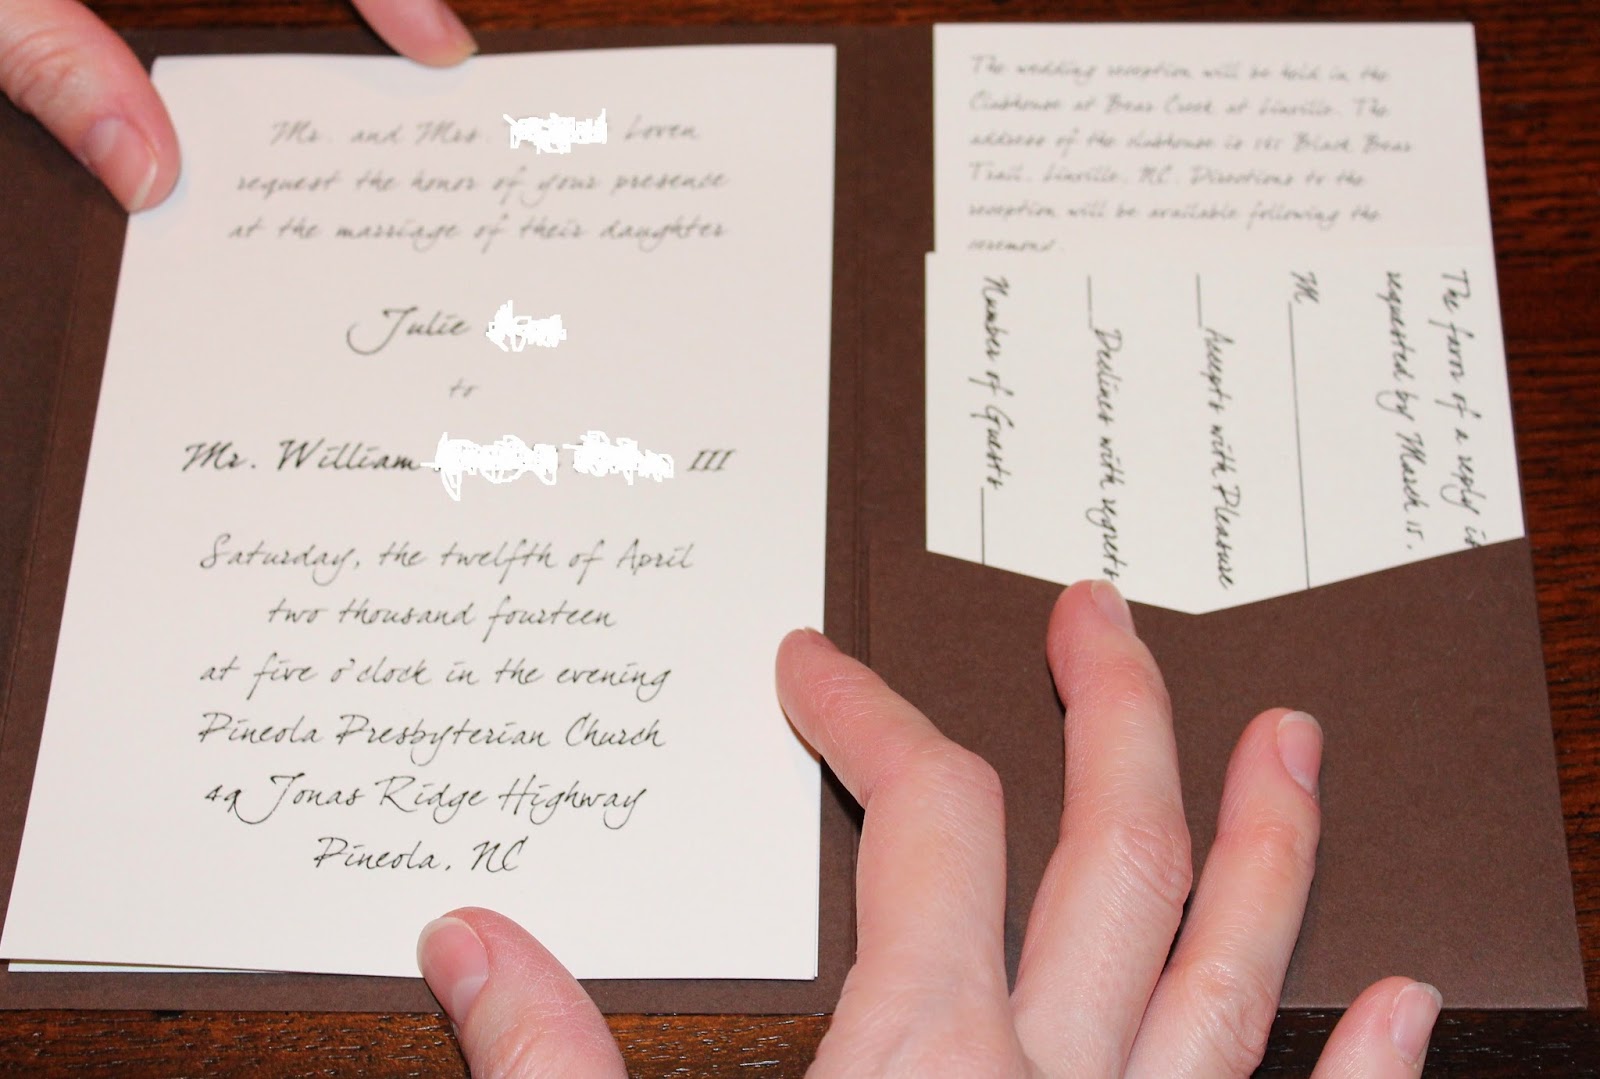 Mr. and Mrs. Loven
request the honor of your presence
at the marriage of their daughter
Julie
to
Mr. William III
Saturday, the twelfth of April
two thousand fourteen
at five o'clock in the evening
Pineola Presbyterian Church
49 Jonas Ridge Highway
Pineola, NC
The wedding reception will be held in the
Clubhouse at Bear Creek at Linville. The
address of the clubhouse is 181 Black Bear
Trail, Linville, NC. Directions to the
reception will be available following the
ceremony.
The favor of a reply is
requested by March 15.
M
Accepts with Pleasure
Declines with regrets
Number of Guests